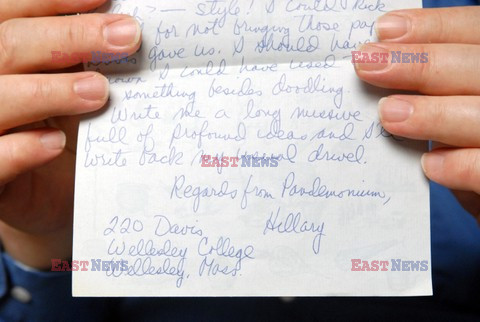 > — style! I could kick
for not bringing those pa
gave us. I should hav
I could have used
something besides doodling.
Write me a long missive
full of profound ideas and I'll
write back my trivial drivel.
Regards from Pandemonium,
Hillary
220 Davis
Wellesley College
Wellesley, Mass.
EASTNEWS
EASTNEWS
EASTNEWS
EASTNEWS
EASTNEWS